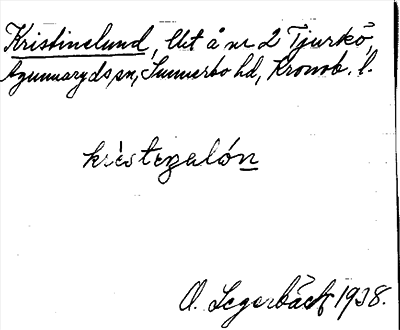 Kristinelund, lht å nr 2 Tjurkö,
Agunnaryds sn, Sunnerbo hd, Kronob. l.
kristenalón
O. Legerbäck 1938.